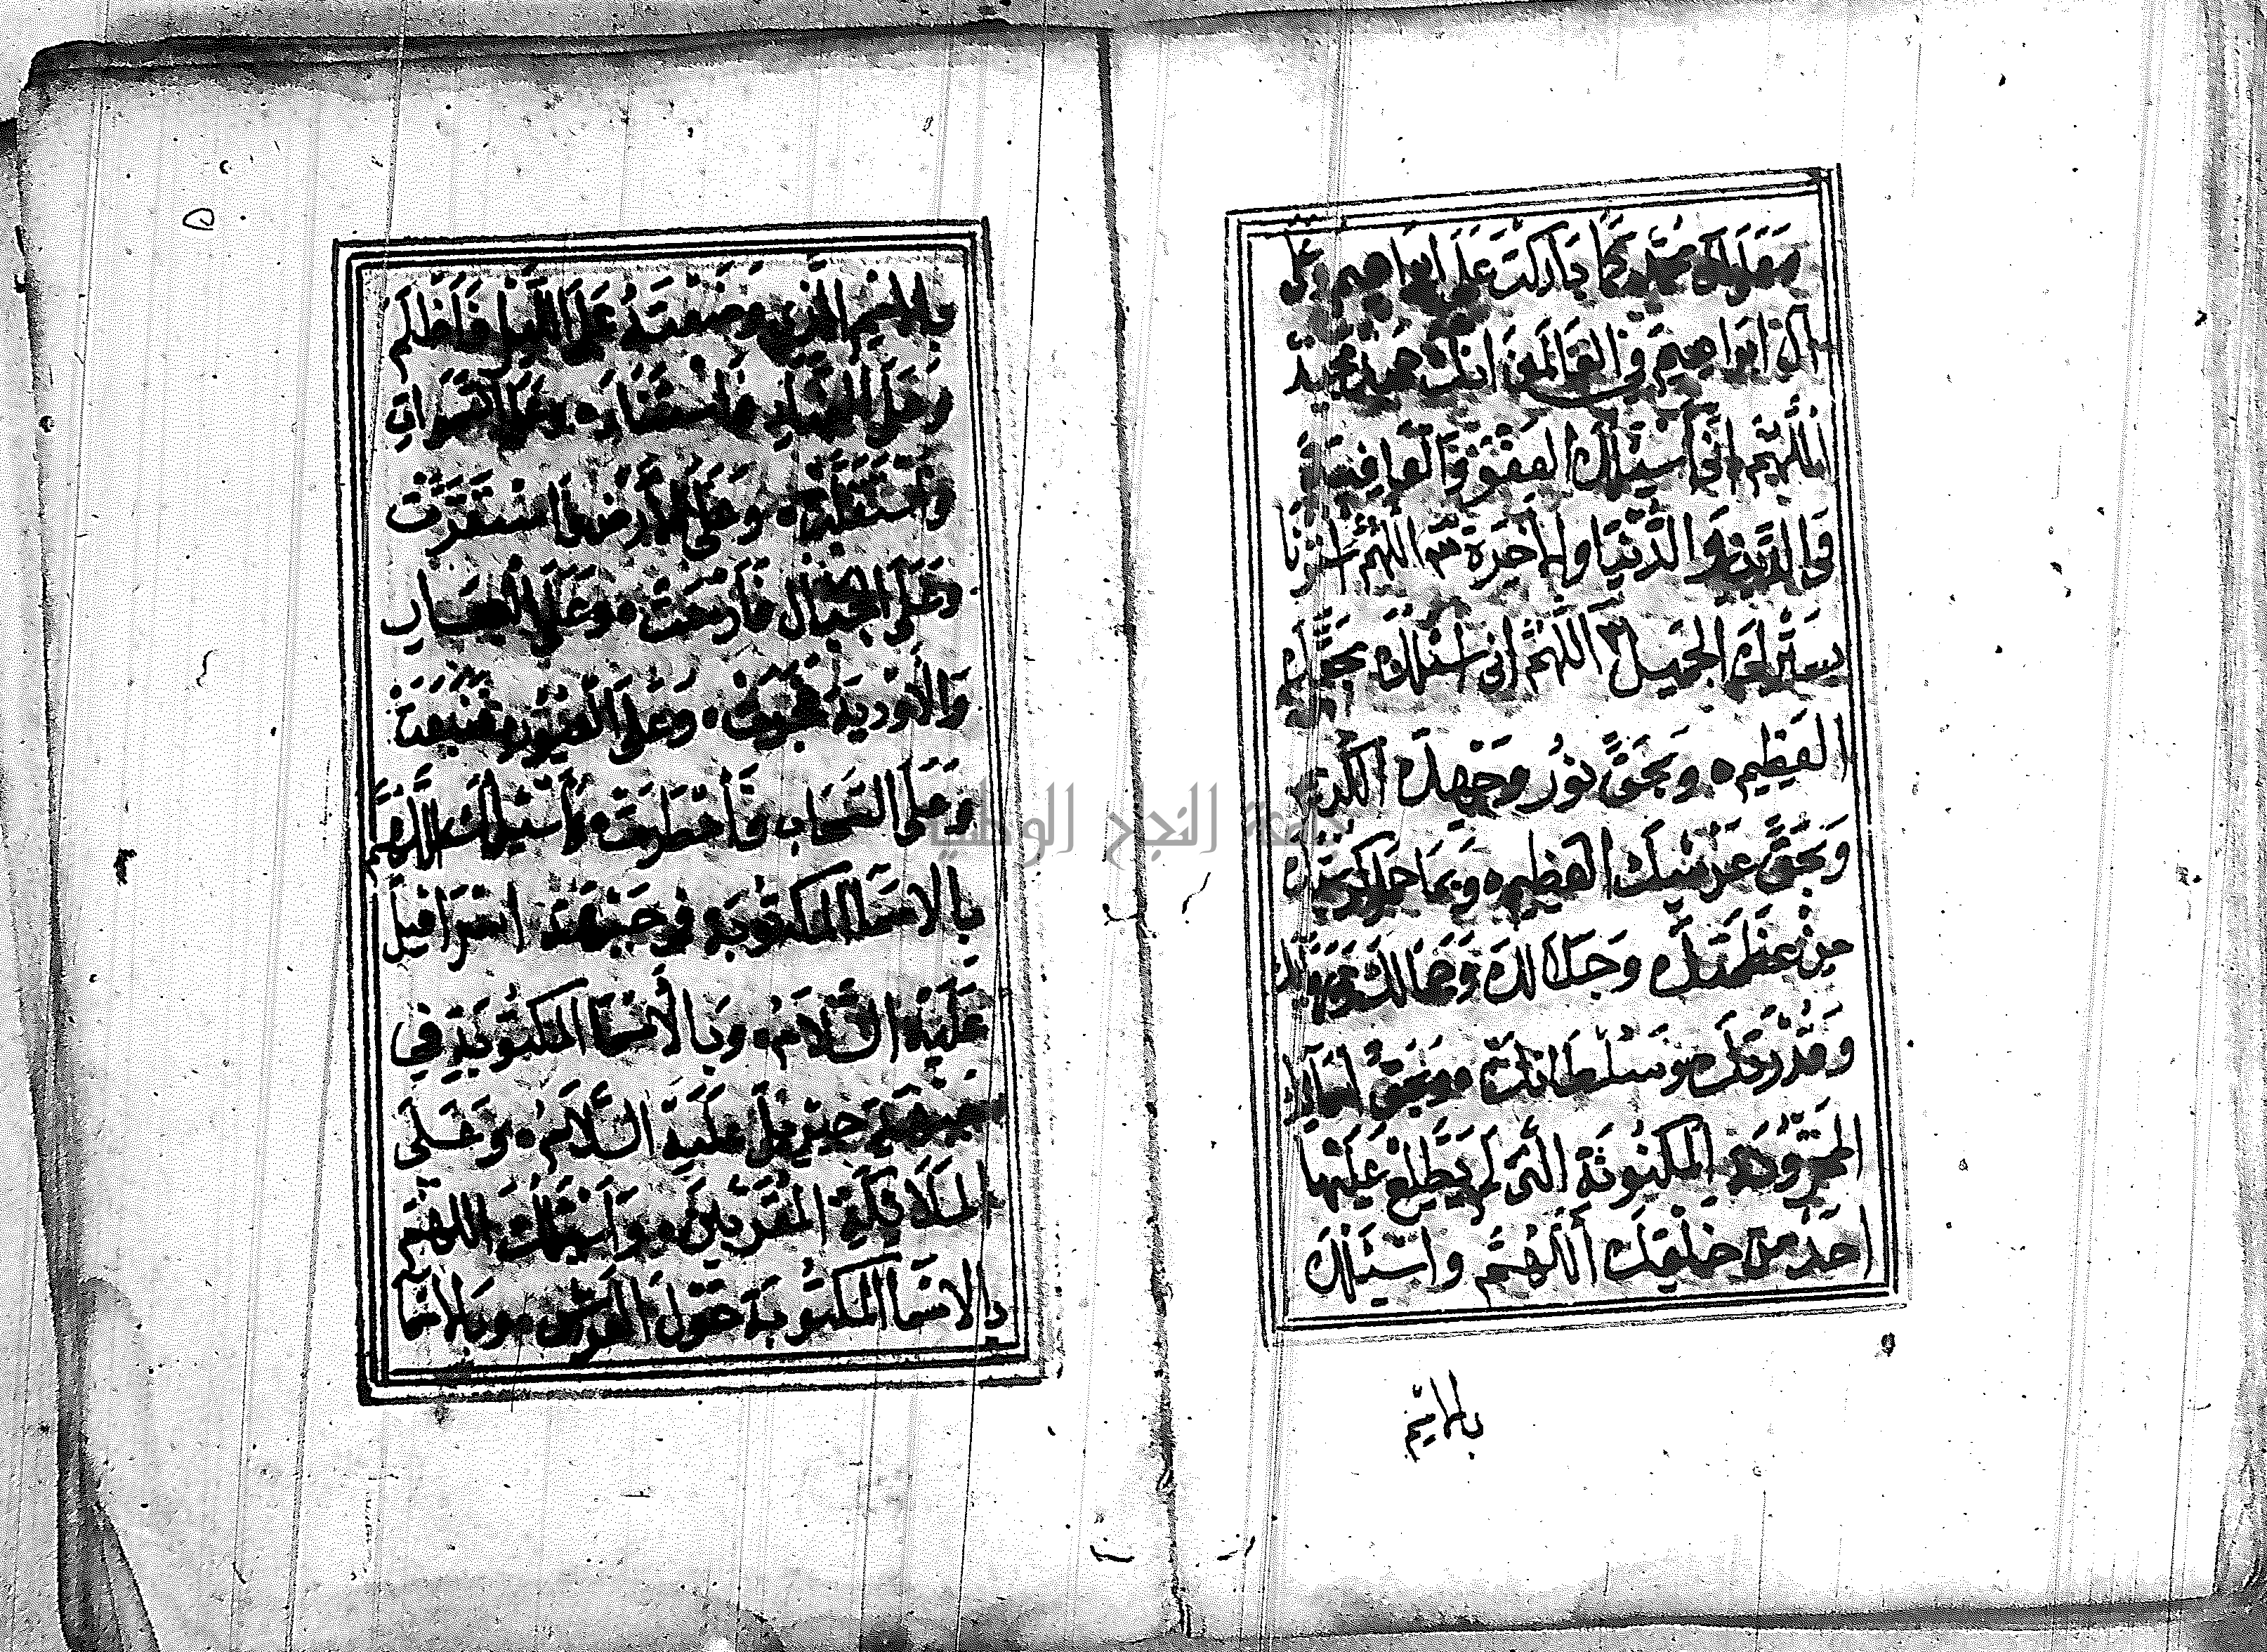 وَعَلَى آلِ مُحَمَّدٍ كَمَا بَارَكْتَ عَلَى ابْرَاهِيمَ وَعَلَى
آلِ ابْرَاهِيمَ فِي الْعَالَمِينَ انَّكَ حَمِيدٌ مَجِيدٌ
اَللَّهُمَّ انِّي أَسْئَلُكَ الْعَفْوَ وَالْعَافِيَةَ
فِي الدِّينِ وَالدُّنْيَا وَالآخِرَةِ اللَّهُمَّ اسْتُرْنَا
بِسِتْرِكَ الْجَمِيلْ اللَّهُمَّ اِنِّي اسْئَلُكَ بِحَقِّكَ
الْعَظِيمِ وَبِحَقِّ نُورِ وَجْهِكَ الْكَرِيمِ
وَبِحَقِّ عَرْشِكَ الْعَظِيمِ وَبِمَا حَمَلَ كُرْسِيُّكَ
مِنْ عَظَمَتِكَ وَجَلَالِكَ وَجَمَالِكَ وَبَهَائِكَ
وَقُدْرَتِكَ وَسُلْطَانِكَ وَبِحَقِّ اسْمَائِكَ
الْمَخْزُونَةِ الْمَكْنُونَةِ الَّتِي لَمْ يَطَّلِعْ عَلَيْهَا
احَدٌ مِنْ خَلْقِكَ أَللَّهُمَّ وَاسْئَلُكَ
بالاسم
بِالاسْمِ الَّذِي وَضَعْتَهُ عَلَى اللَّيْلِ فَأَظْلَمَ
وَعَلَى النَّهَارِ فَاسْتَنَارَ وَعَلَى السَّمَوَاتِ
وَاسْتَقَلَّتْ وَعَلَى الْأَرْضِ فَاسْتَقَرَّتْ
وَعَلَى الْجِبَالِ فَأَرْسَتْ وَعَلَى الْبِحَارِ
وَالْأَوْدِيَةِ فَجَرَتْ وَعَلَى الْعُيُونِ فَنَبَعَتْ
وَعَلَى السَّحَابِ فَأَمْطَرَتْ وَأَسْئَلُكَ اللَّهُمَّ
بِالاسْمَا الْمَكْتُوبَةِ فِي جَبْهَةِ اسْرَافِيلَ
عَلَيْهِ السَّلَامُ وَبِالْأَسْمَا الْمَكْتُوبَةِ فِي
جَبْهَةِ جِبْرِيلَ عَلَيْهِ السَّلَامُ وَعَلَى
الْمَلَائِكَةِ الْمُقَرَّبِينَ وَأَسْئَلُكَ اللَّهُمَّ
بِالاسْمَا الْمَكْتُوبَةِ حَوْلَ الْعَرْشِ وَبِالاسْمَا
جامعة النجاح الوطنية